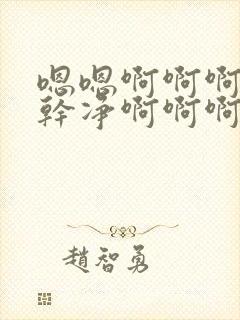 嗯嗯啊啊啊
幹净啊啊啊
趙智勇